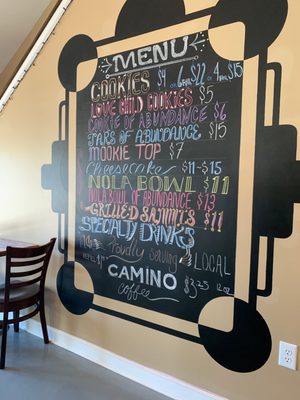 MENU
COOKIES $4 or 6 FOR $22 or 4 FOR $15
LOVE CHILD COOKIES $5
COOKIE OF ABUNDANCE $6
JARS OF ABUNDANCE $15
MOOKIE TOP $7
Cheesecake $11-$15
NOLA BOWL $11
NOLA BOWL OF ABUNDANCE $13
GRILLED SAMMITS $11
SPECIALTY DRINKS
Proudly Serving LOCAL
CAMINO
coffee $3.25 12oz